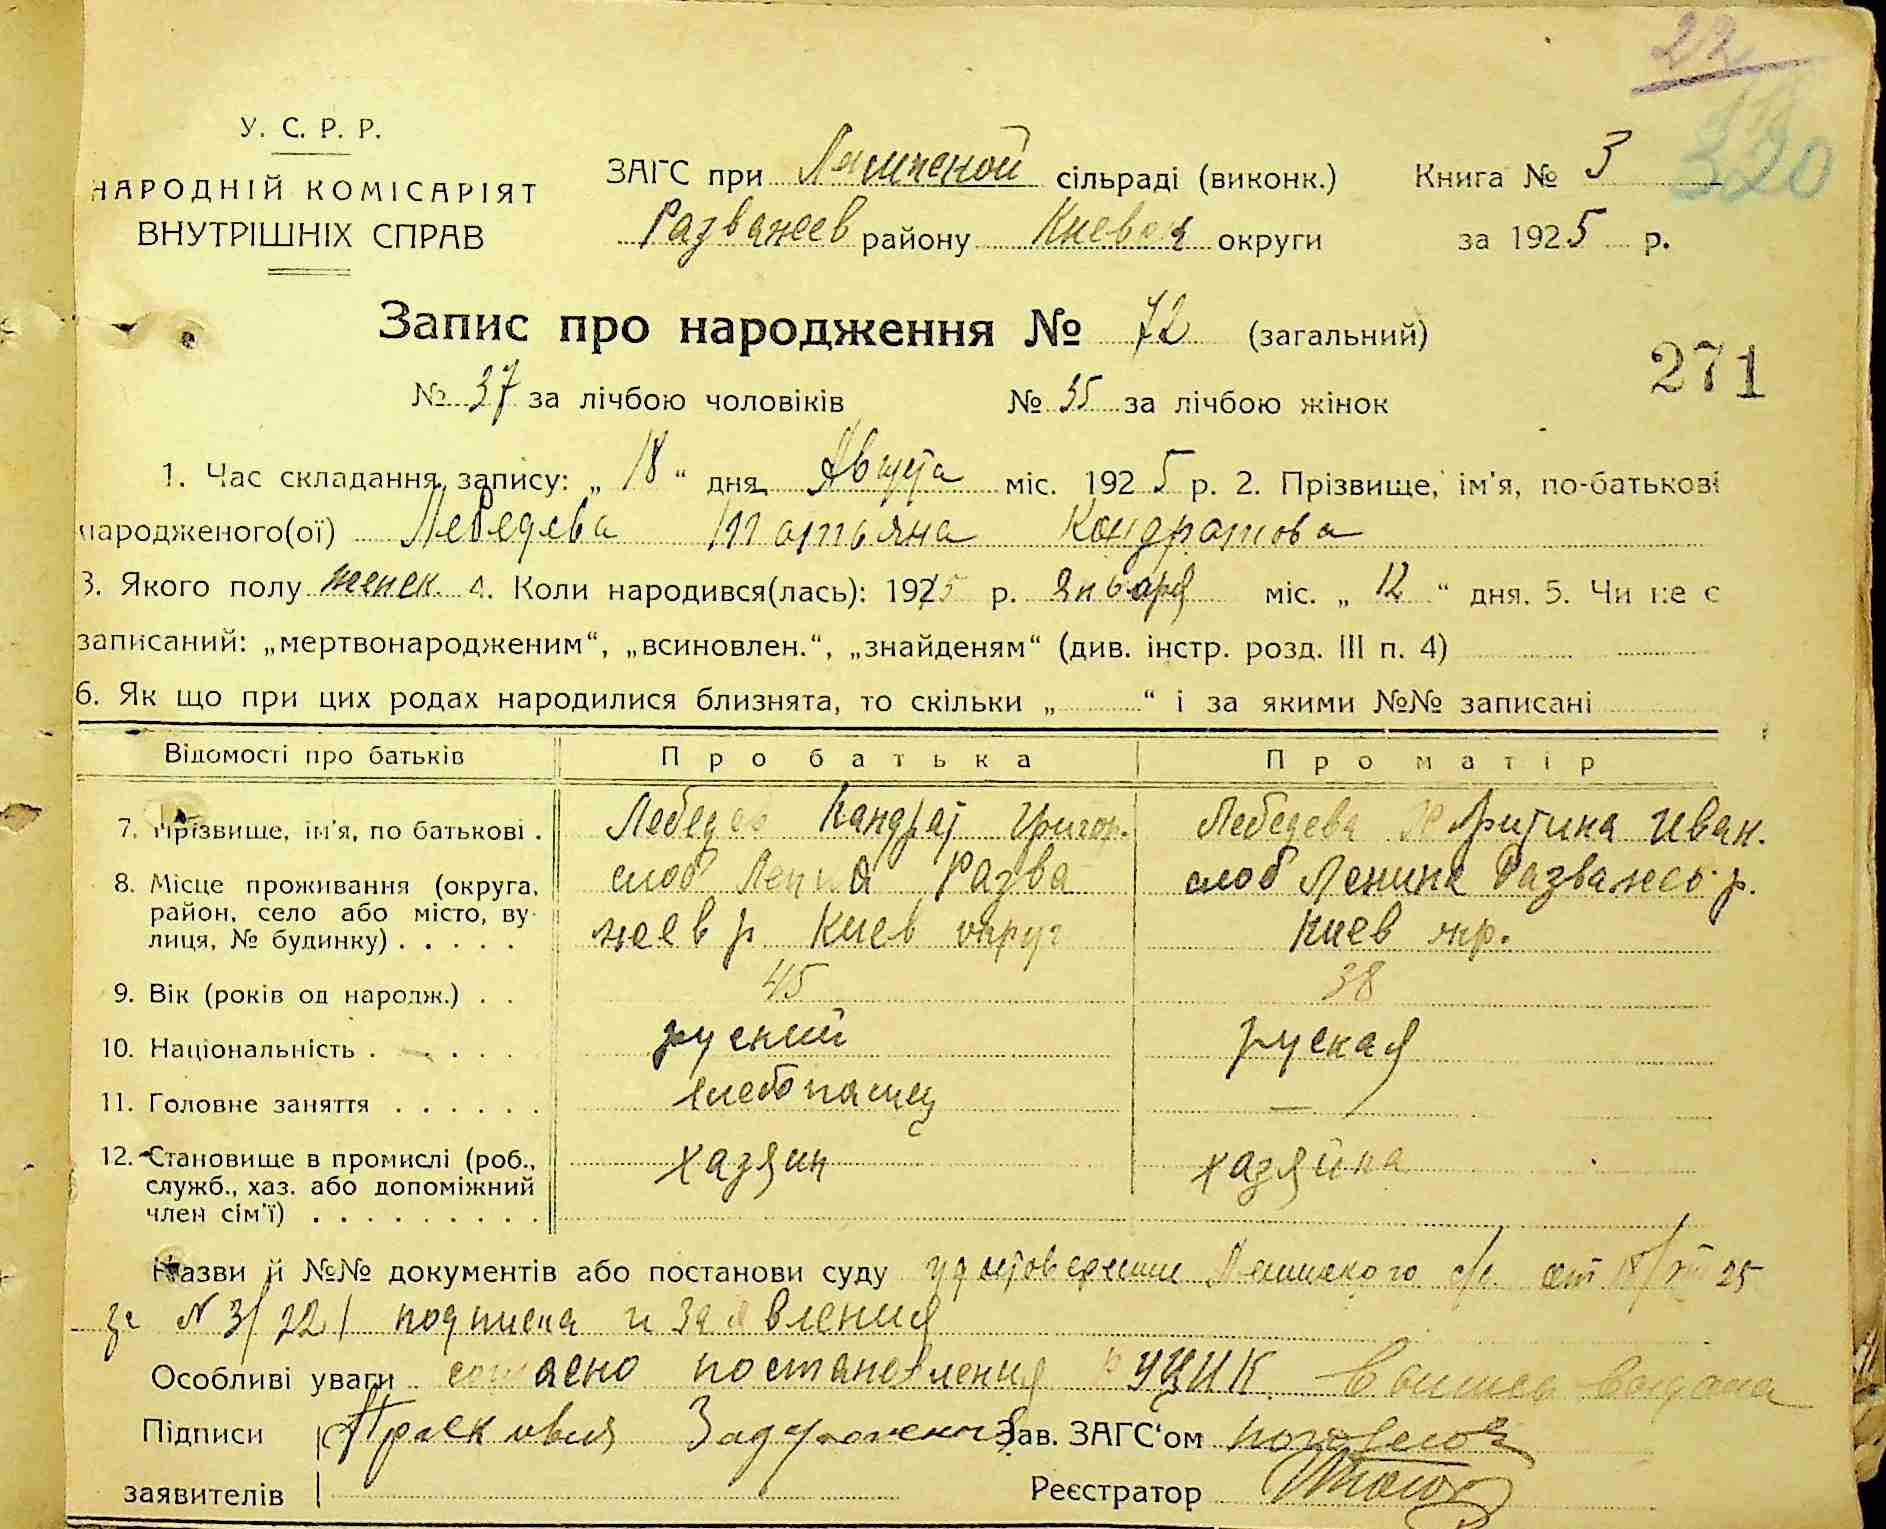 22
320
У. С. Р. Р.
НАРОДНІЙ КОМІСАРІЯТ
ВНУТРІШНІХ СПРАВ
ЗАГС при сільраді (виконк.) Книга № 3
Разважев району Киевск округи за 1925 р.
Запис про народження № 72 (загальний)
271
№ 37 за лічбою чоловіків № 35 за лічбою жінок
1. Час складання запису: „ 18 “ дня Августа міс. 1925 р. 2. Прізвище, ім'я, по-батькові
народженого(ої) Лебедева Татьяна Кондратова
3. Якого полу женск. 4. Коли народився(лась): 1925 р. января міс. „ 12 “ дня. 5. Чи не є
записаний: „мертвонародженим“, „всиновлен.“, „знайденям“ (див. інстр. розд. III п. 4)
6. Як що при цих родах народилися близнята, то скільки „ “ і за якими №№ записані
Відомості про батьків Про батька Про матір
7. Прізвище, ім'я, по батькові . Лебедев Кандрат Григор. Лебедева Иван.
8. Місце проживання (округа, слоб Ленина Разва слоб Ленина Разважев р.
район, село або місто, ву-
лиця, № будинку) . . . . . жев р Киев округ Киев окр.
9. Вік (років од народж.) . . 45 38
10. Національність . . . . . . руский руская
11. Головне заняття . . . . . . хлебопашец —
12. Становище в промислі (роб., хазяин хазяйка
служб., хаз. або допоміжний
член сім'ї) . . . . . . . . .
Назви й №№ документів або постанови суду удостоверении Ленинского с/с от 18/VIII 25
за N 3/221 подписка и заявления
Особливі уваги согласно постановления ВУЦИК выдана
Підписи Прасковия Зав. ЗАГС'ом
заявителів Реєстратор